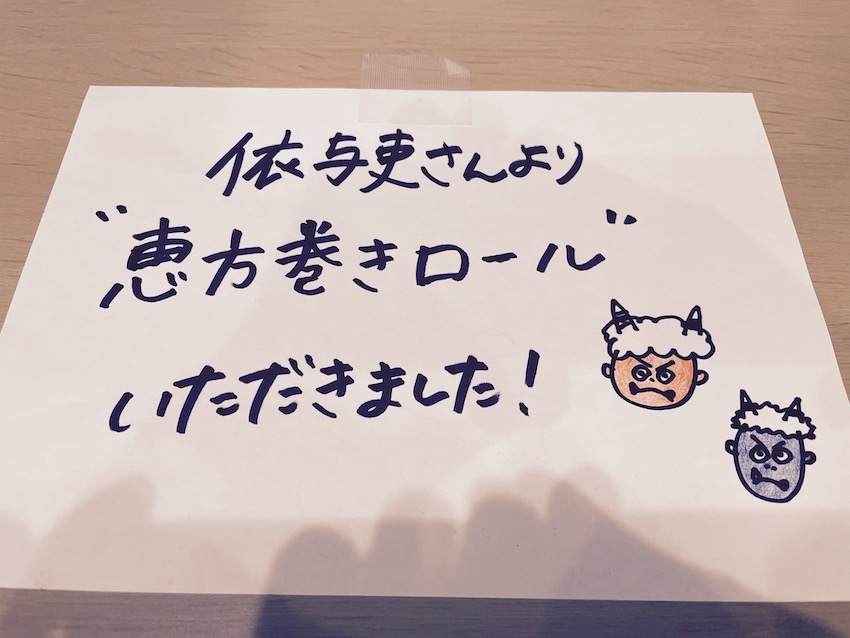 依与吏さんより
"恵方巻きロール"
いただきました！